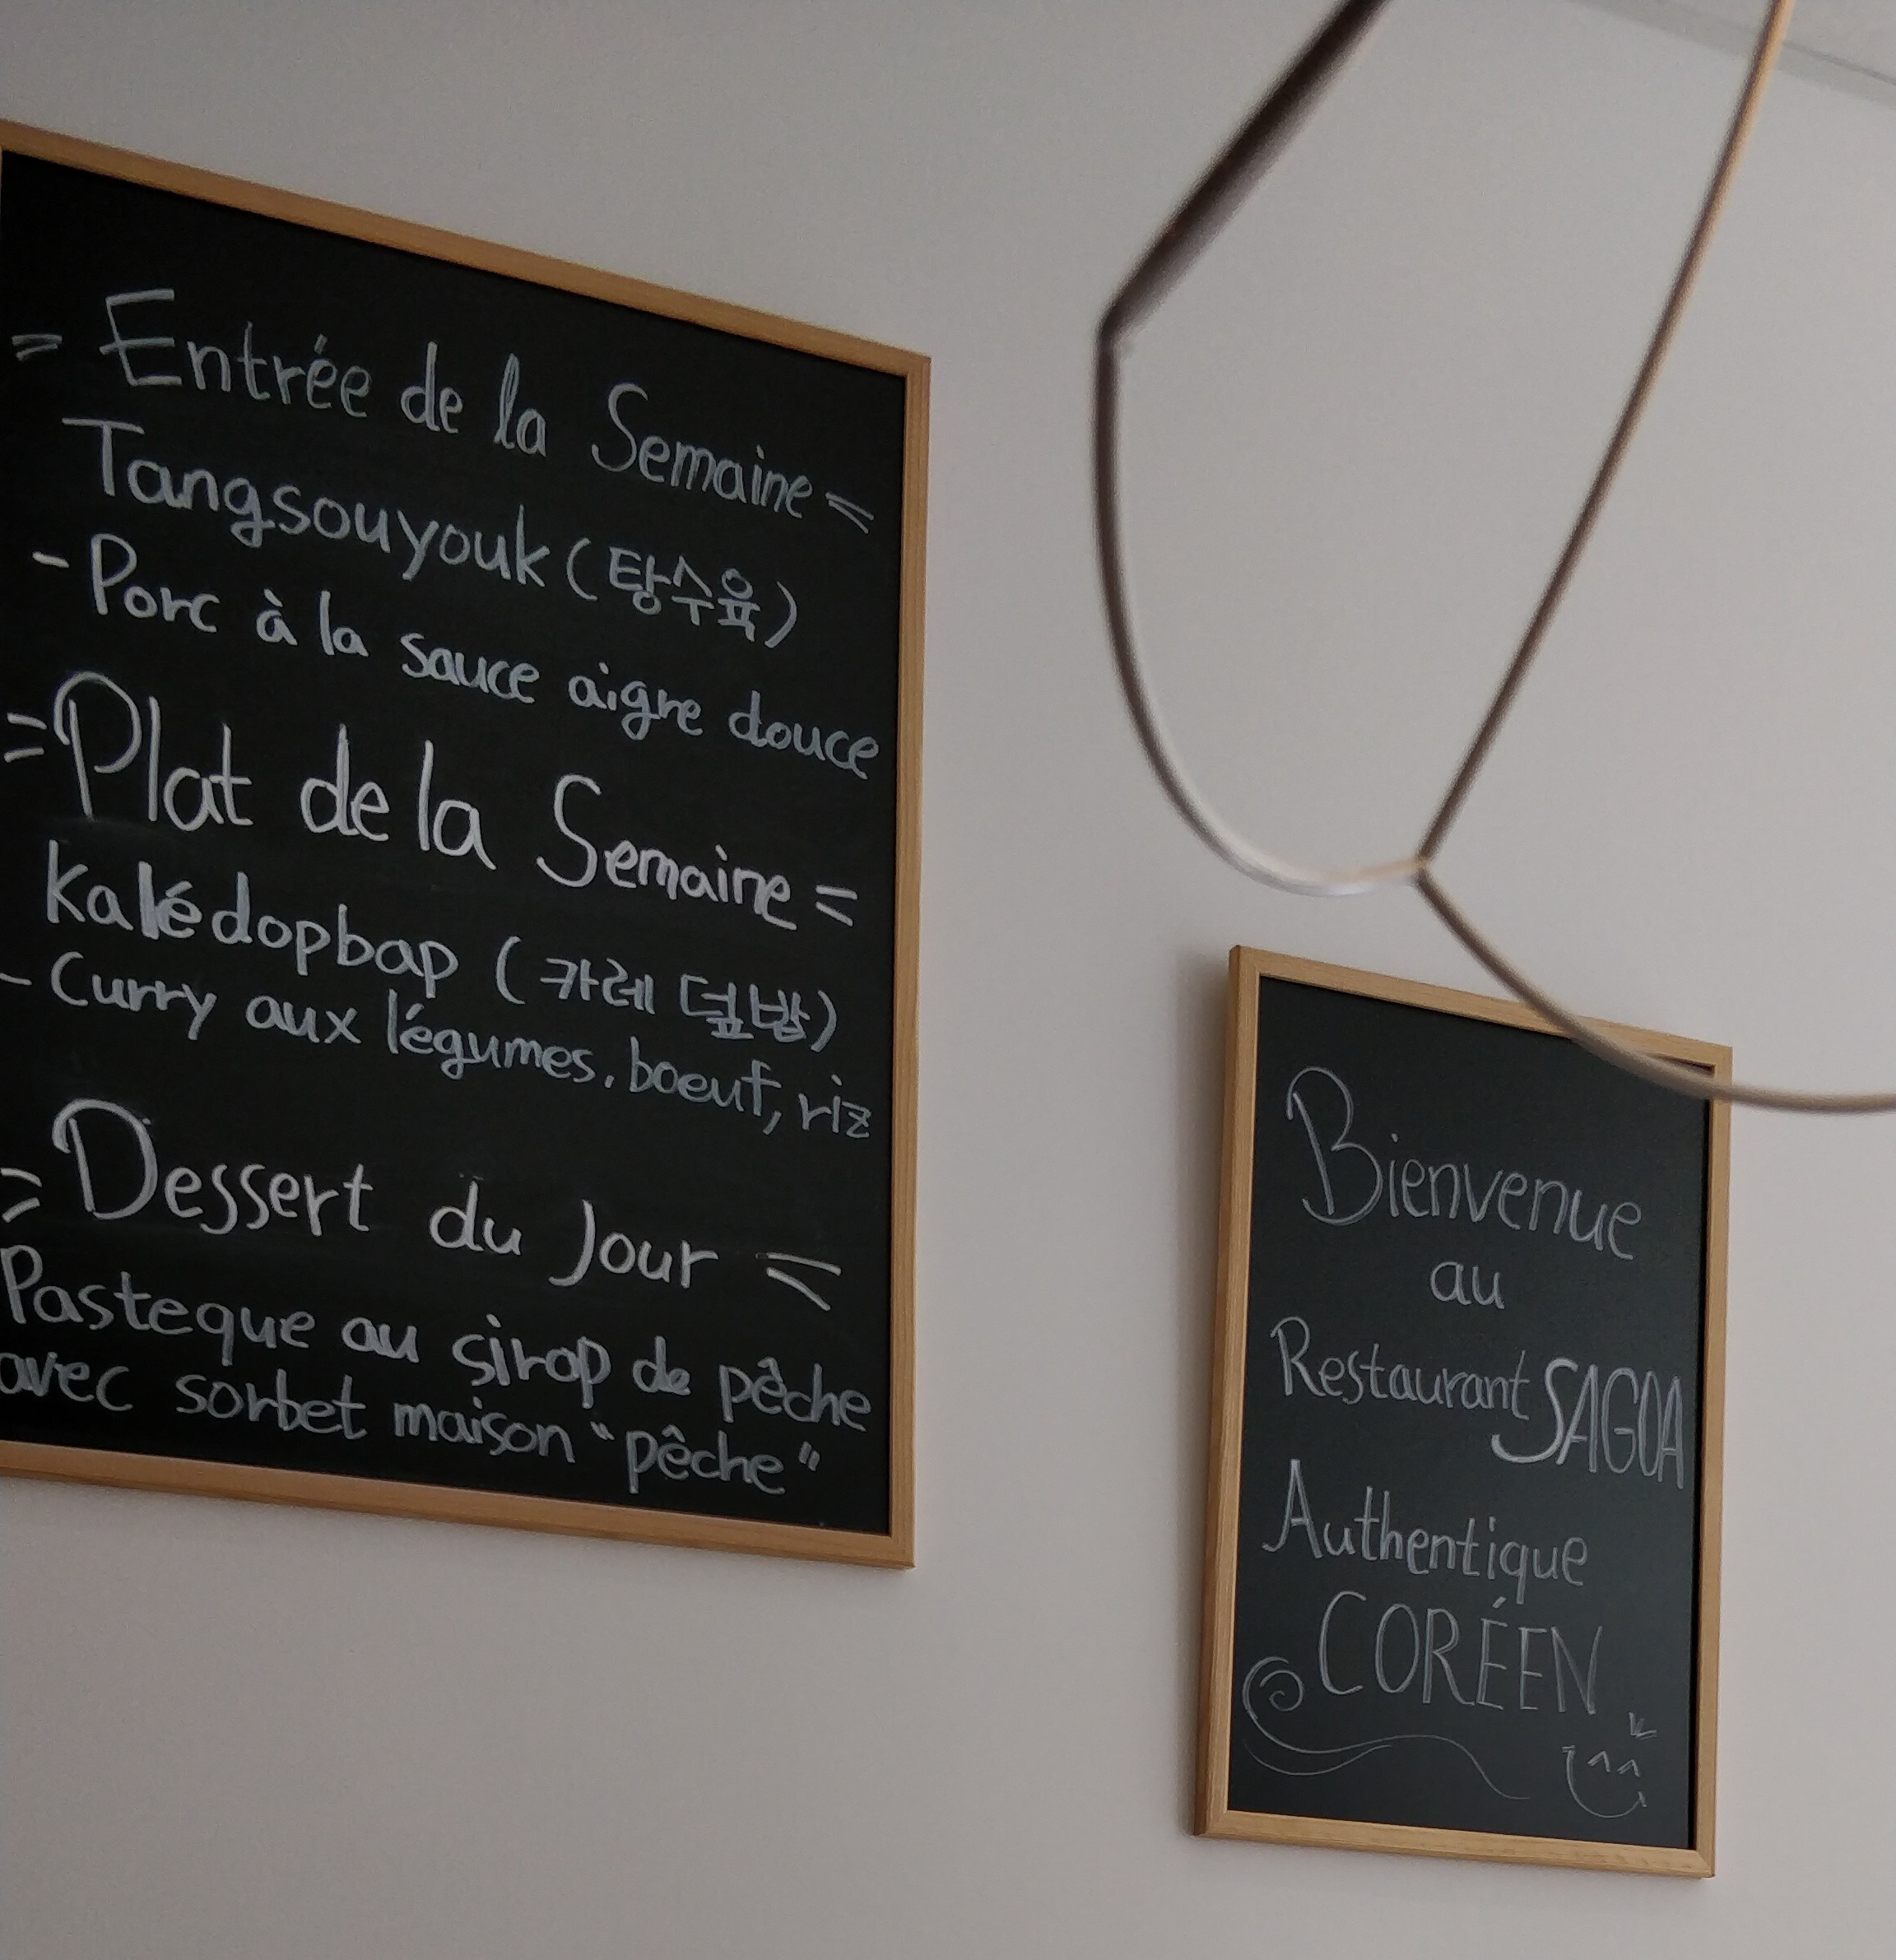 = Entrée de la Semaine =
Tangsouyouk (탕수육)
- Porc à la sauce aigre douce
= Plat de la Semaine =
kalédopbap (카레 덮밥)
- Curry aux légumes, boeuf, riz
= Dessert du Jour =
Pasteque au sirop de pêche
avec sorbet maison "pêche"
Bienvenue
au
Restaurant SAGOA
Authentique
CORÉEN